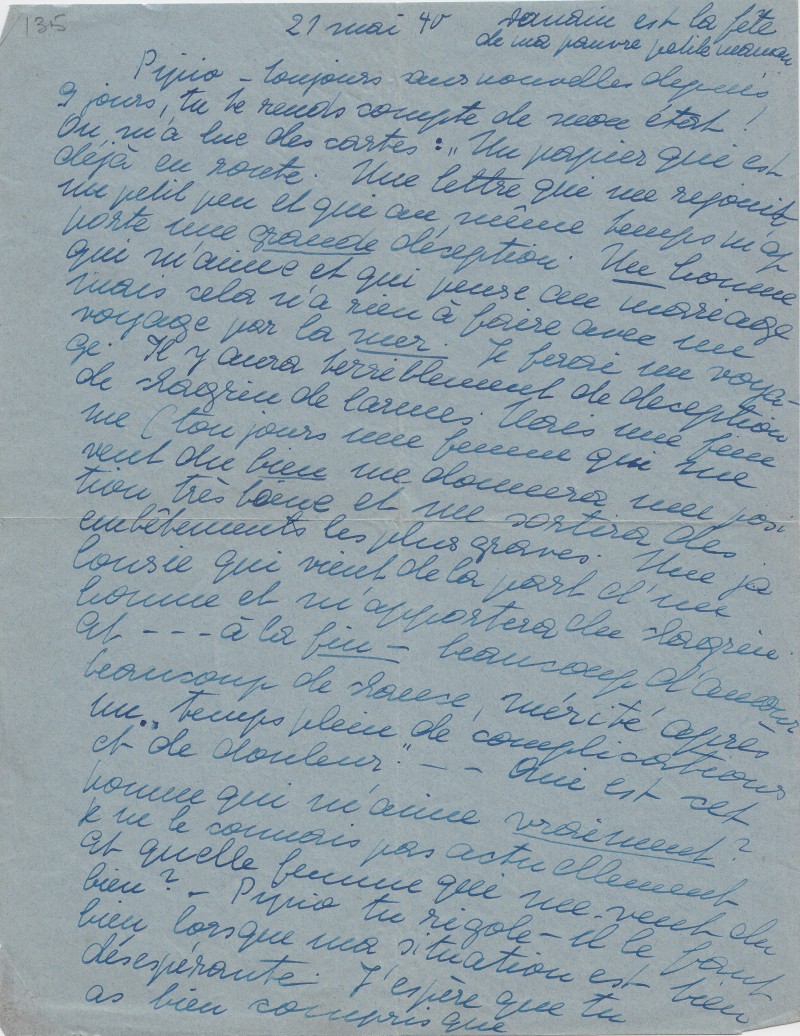 135
21 mai 40
demain est la fête
de ma pauvre petite maman
Pipio – toujours sans nouvelles depuis
9 jours, tu te rends compte de mon état!
On m'a lue des cartes: „Un papier qui est
déjà en route. Une lettre qui me rejouit
un petit peu et qui au même temps m'ap
porte une grande déception. Un homme
qui m'aime et qui pense au mariage
mais cela n'a rien à faire avec une
voyage par la mer. Je ferai un voya-
ge. Il y aura terriblement de deception
de chagrin de larmes. Mais une fem
me (toujours une femme qui me
veut du bien me donnera une posi
tion très bonne et me sortira des
embêtements les plus graves. Une ja
lousie qui vient de la part d'un
homme et m'apportera du chagrin.
et - - - à la fin – beaucoup d'amour
beaucoup de chance, mérité après
un temps plein de complications
et de douleur." – – Qui est cet
homme qui m'aime vraiment?
Je ne le connais pas actuellement
et quelle femme qui me veut du
bien? – Pipio tu rigole – il le faut
bien lorsque ma situation est bien
désespérante. J'espère que tu
as bien compris que